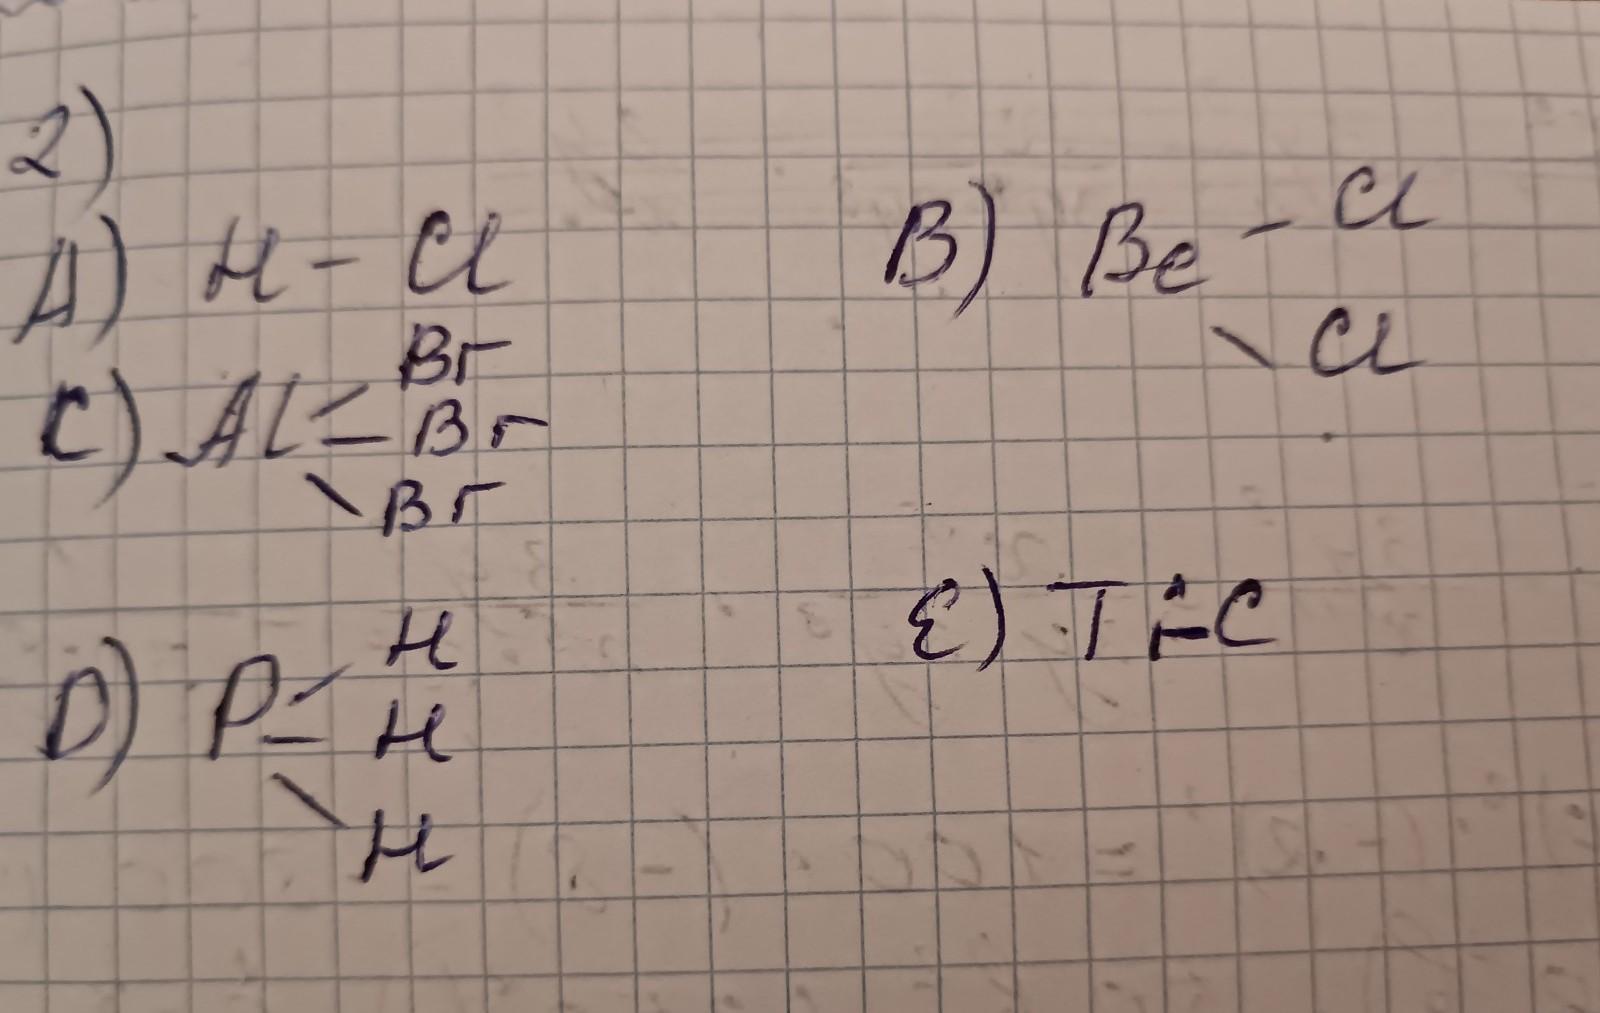 2)
A) H - Cl
B) Be - Cl
\ Cl
C) Al / Br
- Br
\ Br
D) P / H
- H
\ H
E) Ti-C